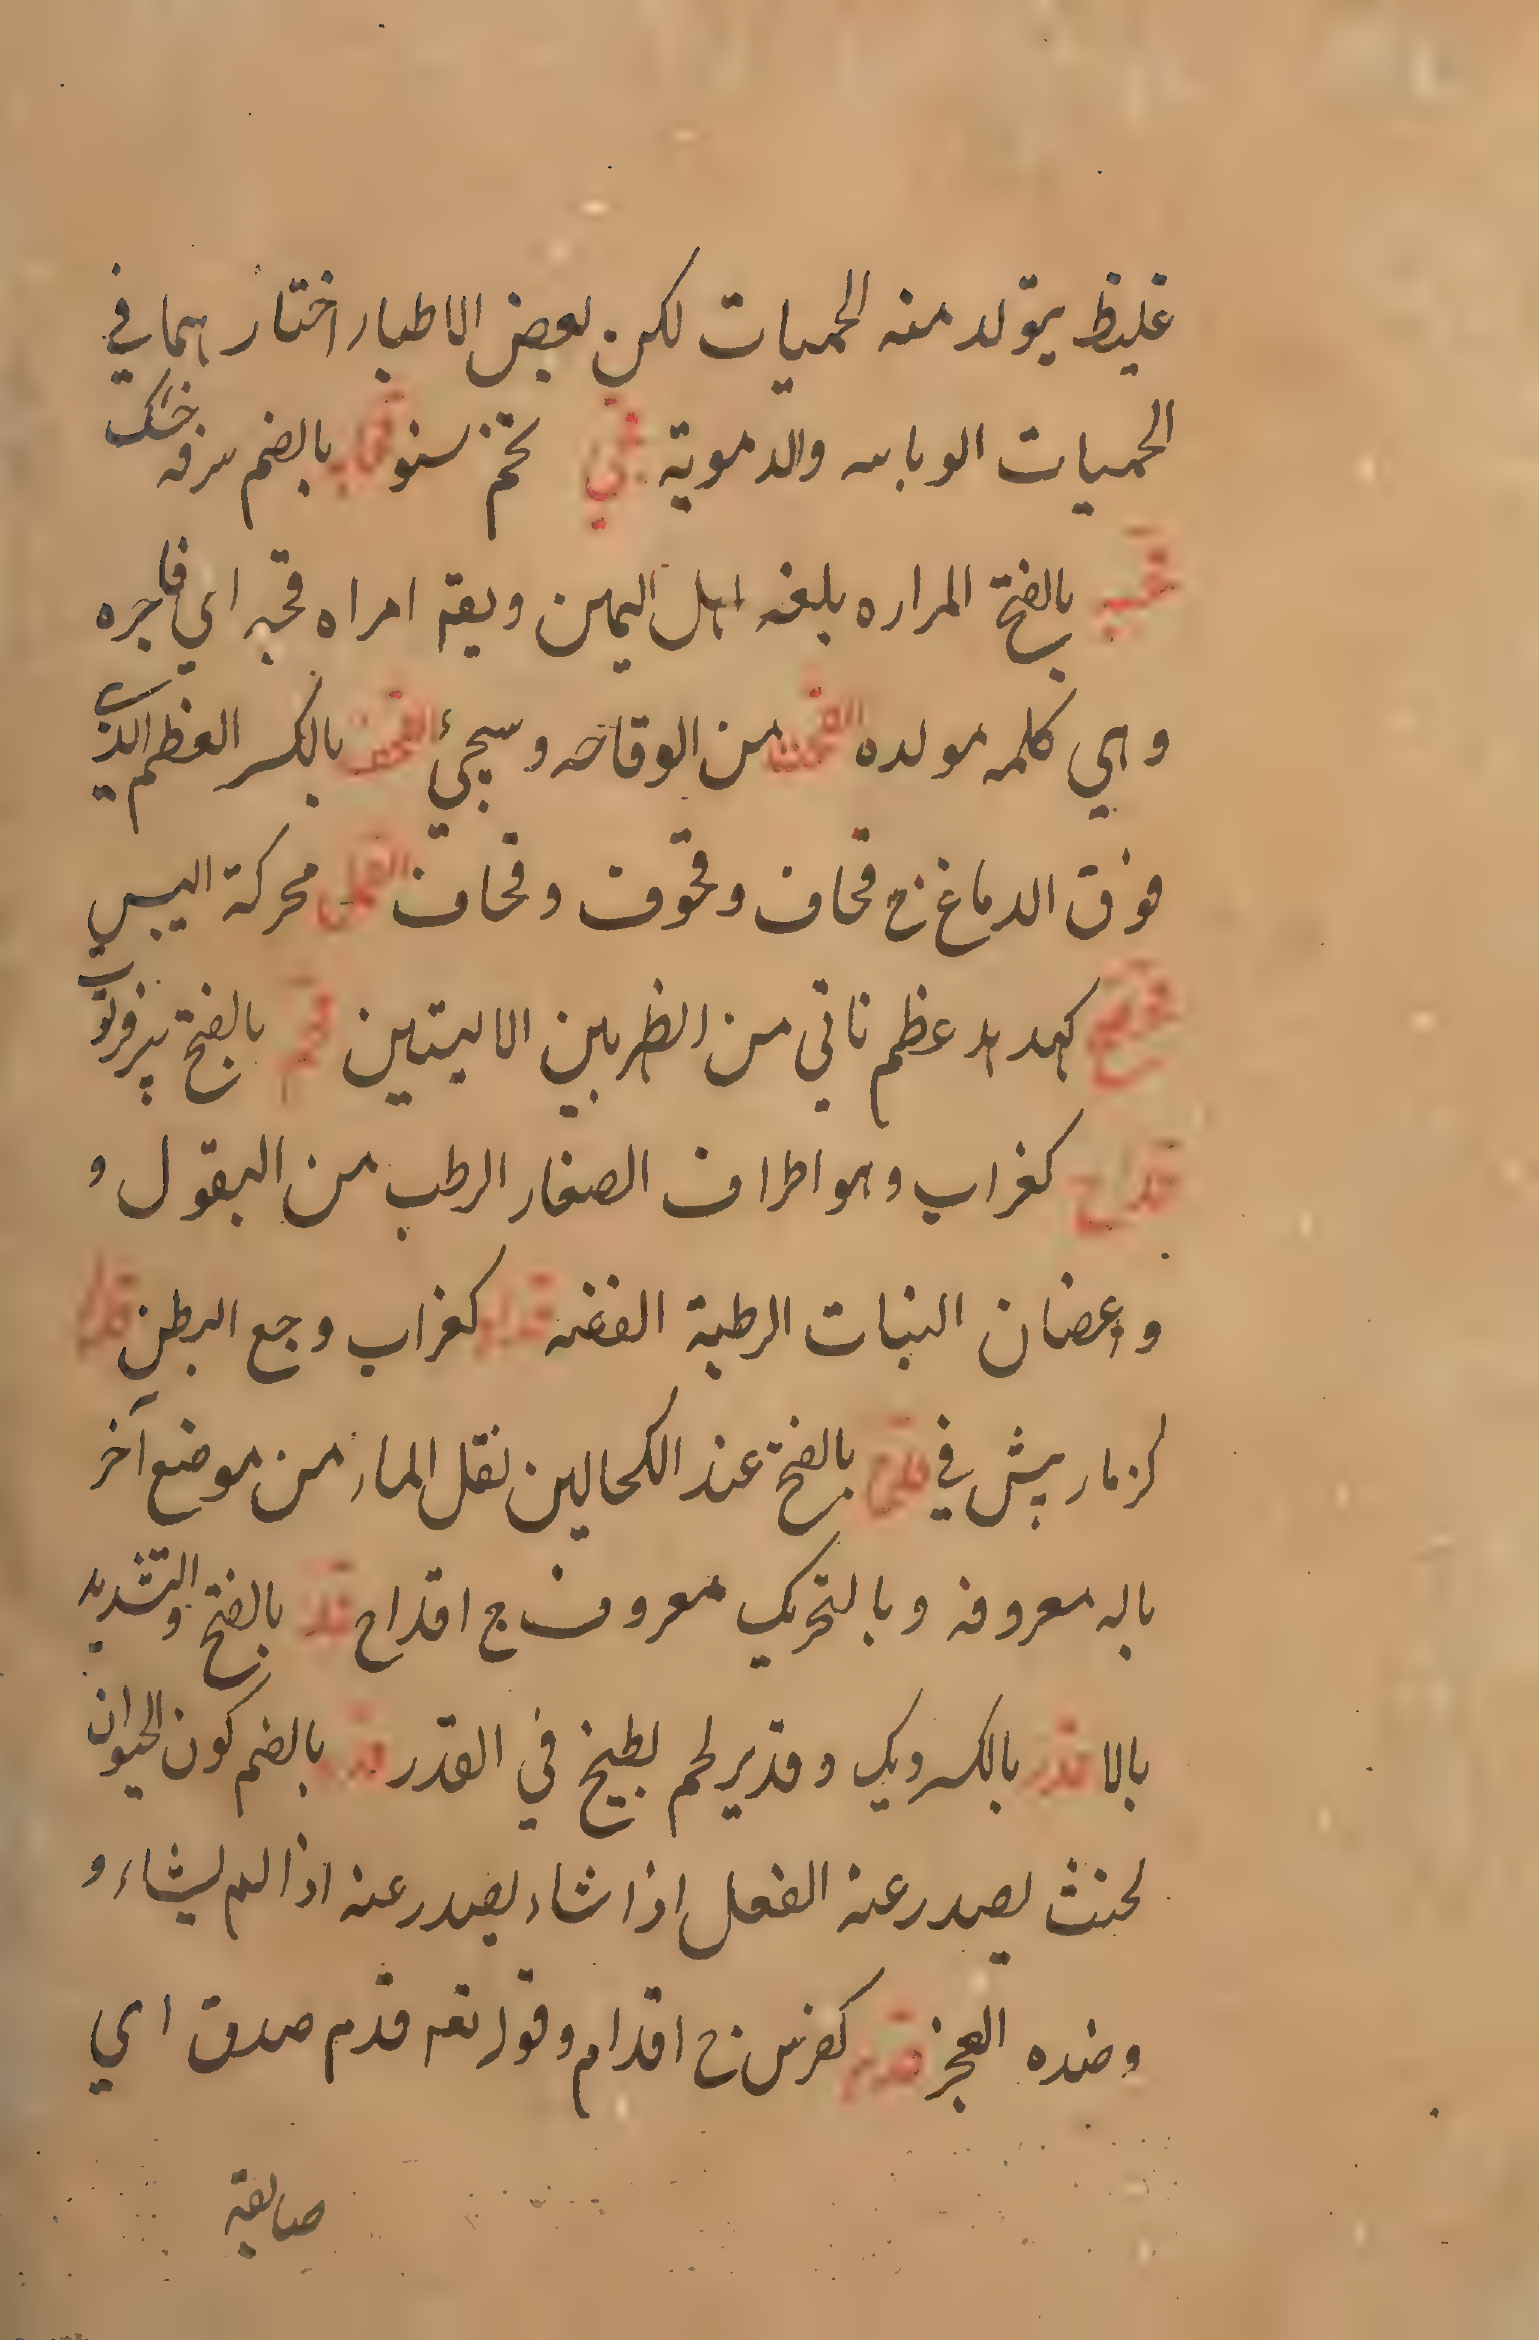 غليظ يتولد منه الحميات لكن بعض الاطباء اختار هما في
الحميات الوبايه والدموية قحى تخم سنو قحاب بالضم سرفه خشك
قحبه بالفتح المراره بلغه اهل اليمن ويقم امراه قحبه اي فاجره
وهي كلمه مولده من الوقاحه وسيجئ القحف بالكسر العظم الذي
فوق الدماغ ج قحاف وقحوف وقحاف القحل محركة اليبس
قحقح كهدهد عظم ناتي من الظربين الاليتين قحم بالفتح پير فرتوت
قداح كغراب وهو اطراف الصغار الرطب من البقول و
واعضان النبات الرطبة الغضه قداد كغراب وجع البطن
كزمار پيش في قدح بالفتح عند الكحالين نقل الماء من موضع آخر
باله معروفه وبالتحريك معروف ج اقداح قد بالفتح والتشديد
بالا قدر بالكسر ويك وقدير لحم بطيخ في القدر قدره بالضم كون الحيوان
لحنث يصدر عنه الفعل اذا شاء يصدر عنه اذا لم يشاء و
وضده العجز قدم كفرس ج اقدام وقوله تعه قدم صدق اي
صابقة